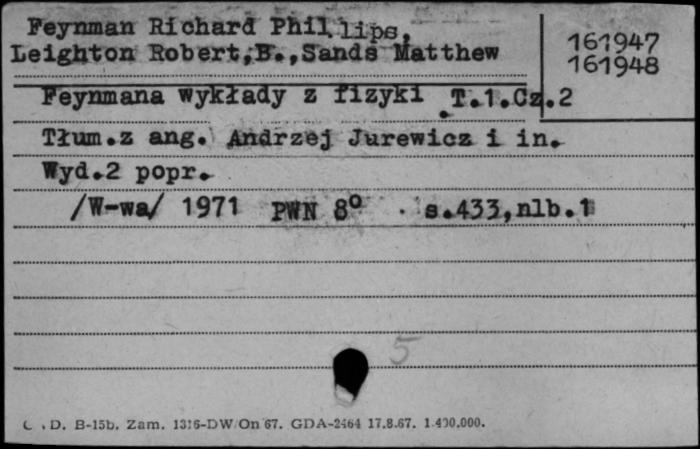 Feynman Richard Phillips,
Leighton Robert,B.,Sands Matthew
161947
161948
Feynmana wykłady z fizyki T.1.Cz.2
Tłum.z ang. Andrzej Jurewicz i in.
Wyd.2 popr.
/W-wa/ 1971 PWN 8° s.433,nlb.1
5
D. B-15b. Zam. 1316-DW/On 67. GDA-2464 17.8.67. 1.400.000.